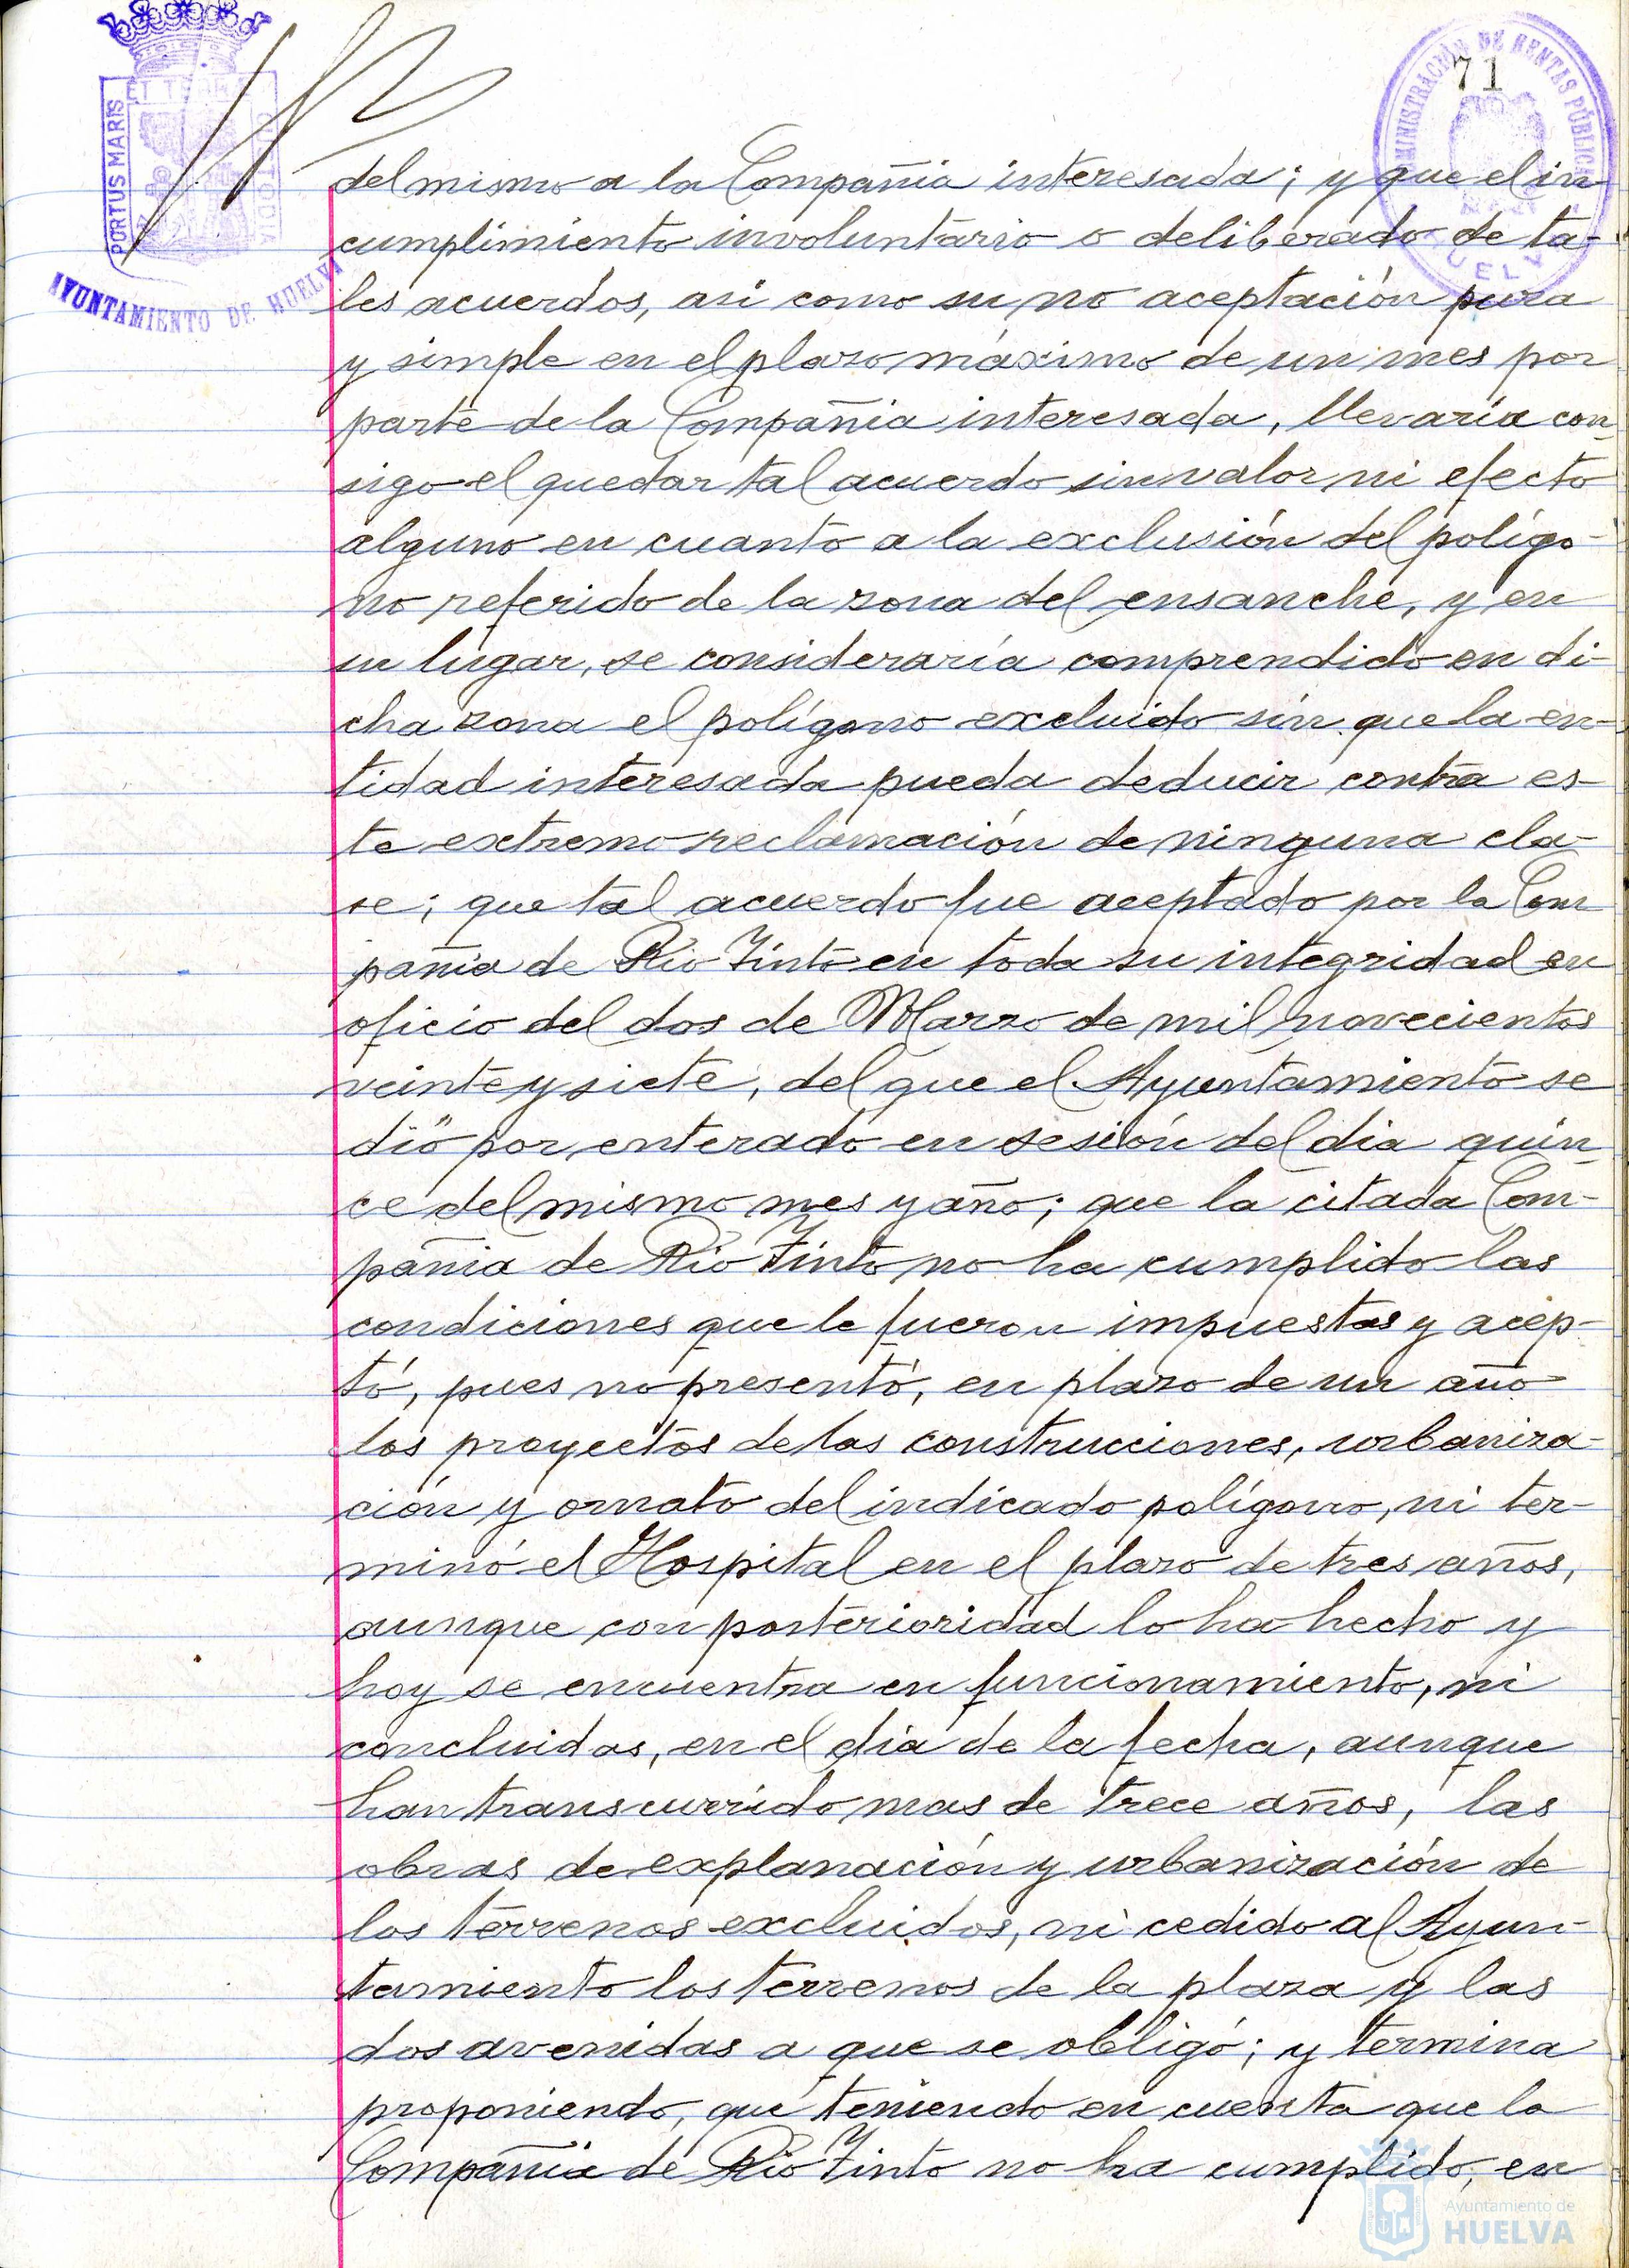 71
PORTUS MARIS
ET TERRAE
CUSTODIA
AYUNTAMIENTO DE HUELVA
ADMINISTRACIÓN DE RENTAS PÚBLICAS
HUELVA
del mismo a la Compañia interesada; y que el in
cumplimiento involuntario o deliberado de ta-
les acuerdos, asi como su no aceptación pura
y simple en el plazo máximo de un mes por
parte de la Compañia interesada, llevaría con
sigo el quedar tal acuerdo sin valor ni efecto
alguno en cuanto a la exclusión del polígo-
no referido de la zona del ensanche, y en
su lugar, se consideraría comprendido en di-
cha zona el polígono excluido sin que la en-
tidad interesada pueda deducir contra es-
te extremo reclamación de ninguna cla-
se; que tal acuerdo fue aceptado por la Com
pañia de Rio Tinto en toda su integridad en
oficio del dos de Marzo de mil novecientos
veinte y siete, del que el Ayuntamiento se
dió por enterado en sesión del dia quin-
ce del mismo mes y año; que la citada Com-
pañia de Rio Tinto no ha cumplido las
condiciones que le fueron impuestas y acep-
tó, pues no presentó, en plazo de un año
los proyectos de las construcciones, urbaniza-
ción y ornato del indicado polígono, ni ter-
minó el Hospital en el plazo de tres años,
aunque con posterioridad lo ha hecho y
hoy se encuentra en funcionamiento, ni
concluidas, en el dia de la fecha, aunque
han transcurrido mas de trece años, las
obras de explanación y urbanización de
los terrenos excluidos, ni cedido al Ayun-
tamiento los terrenos de la plaza y las
dos avenidas a que se obligó; y termina
proponiendo, que teniendo en cuenta que la
Compañia de Rio Tinto no ha cumplido, en
Ayuntamiento de
HUELVA